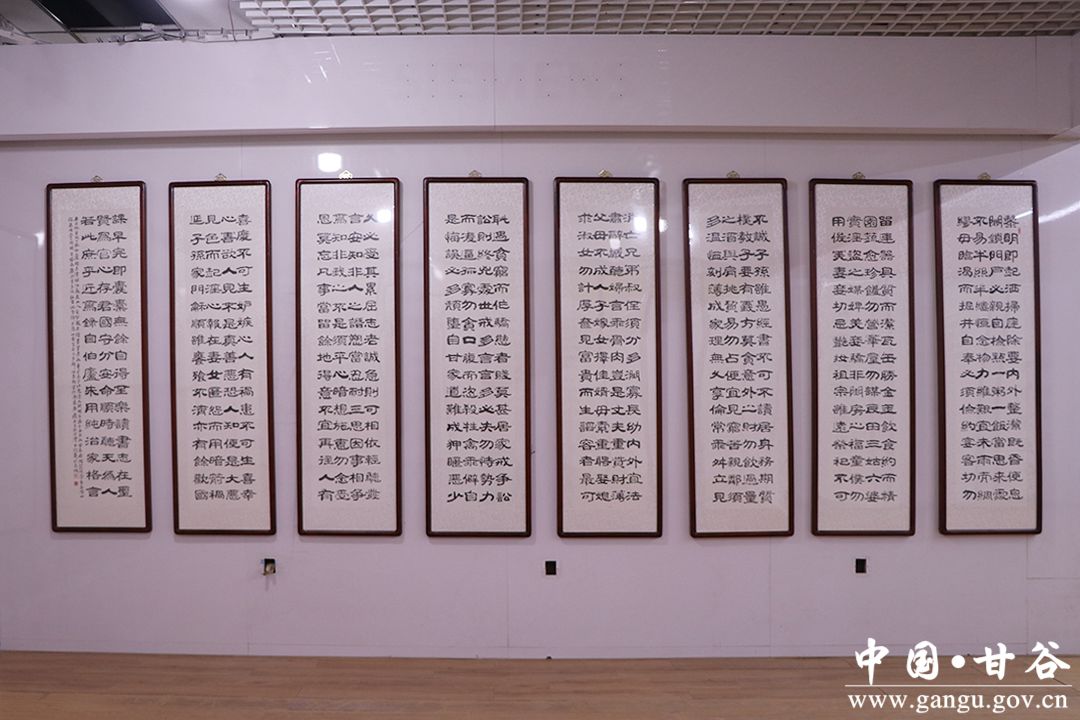 黎明即起洒掃庭除要內外整潔既昏便息
關鎖門戶必親自檢點一粥一飯當思來處
不易半絲半縷恒念物力維艱宜未雨而綢
繆毋臨渴而掘井自奉必須儉約宴客切勿
留連器具質而潔瓦缶勝金玉飲食約而精
園蔬愈珍饈勿營華屋勿謀良田三姑六婆
實淫盜之媒婢美妾嬌非閨房之福童僕勿
用俊美妻妾切忌艷妝祖宗雖遠祭祀不可
不誠子孫雖愚經書不可不讀居身務期質
樸教子要有義方莫貪意外之財勿飲過量
之酒與肩挑貿易勿占便宜見窮苦親鄰須
多溫恤刻薄成家理無久享倫常乖舛立見
消亡兄弟叔侄須分多潤寡長幼內外宜法
肅辭嚴聽婦言乖骨肉豈是丈夫重貲財薄
父母不成人子嫁女擇佳婿毋索重聘娶媳
求淑女勿計厚奩見富貴而生諂容者最可
恥遇貧窮而作驕態者賤莫甚居家戒爭訟
訟則終凶處世戒多言言多必失勿恃勢力
而凌逼孤寡毋貪口腹而恣殺牲禽乖僻自
是悔誤必多頹惰自甘家道難成狎昵惡少
久必受其累屈志老誠急則可相依輕聽發
言安知非人之譖愬當忍耐三思因事相爭
焉知非我之不是須平心暗想施惠勿念受
恩莫忘凡事當留餘地得意不宜再往人有
喜慶不可生妒嫉心人有禍患不可生喜幸
心善欲人見不是真善惡恐人知便是大惡
見色而起淫心報在妻女匿怨而用暗箭禍
延子孫家門和順雖饔飧不濟亦有餘歡國
課早完即囊橐無餘自得至樂讀書志在聖
賢為官心存君國守分安命順時聽天為人
若此庶乎近焉錄自伯廬朱用純治家格言
中国·甘谷
www.gangu.gov.cn